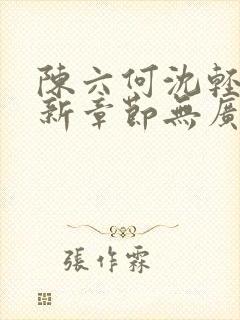 陳六何沈輕
新章節無廣
張作霖